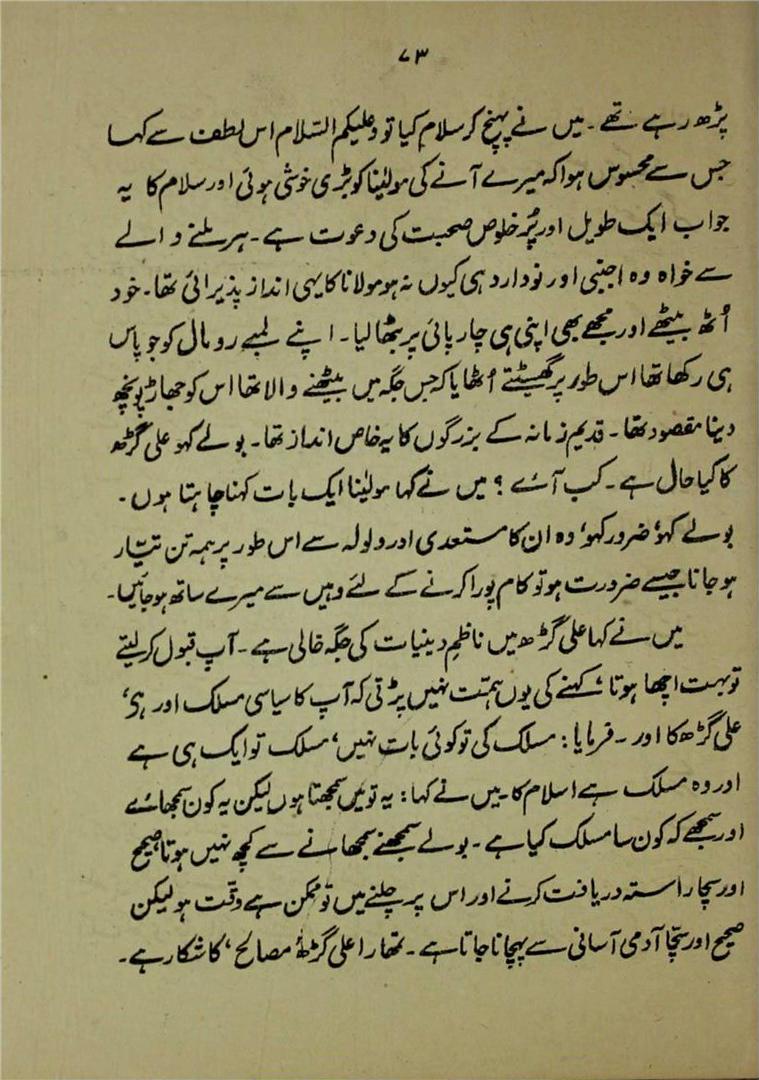 ۷۳
پڑھ رہے تھے۔ میں نے پہنچ کر سلام کیا تو وعلیکم السّلام اس لطف سے کہا
جس سے محسوس ہوا کہ میرے آنے کی مولٰینا کو بڑی خوشی ہوئی اور سلام کا یہ
جواب ایک طویل اور پُر خلوص صحبت کی دعوت ہے۔ ہر ملنے والے
سے خواہ وہ اجنبی اور نووارد ہی کیوں نہ ہو مولانا کا یہی انداز پذیرائی تھا۔ خود
اُٹھ بیٹھے اور مجھے بھی اپنی ہی چارپائی پر بٹھا لیا۔ اپنے لمبے رومال کو جو پاس
ہی رکھا تھا اس طور پر گھسیٹتے اُٹھایا کہ جس جگہ میں بیٹھنے والا تھا اس کو جھاڑ پونچھ
دینا مقصود تھا۔ قدیم زمانہ کے بزرگوں کا یہ خاص انداز تھا۔ بولے کہو علی گڑھ
کا کیا حال ہے۔ کب آئے؟ میں نے کہا مولٰینا ایک بات کہنا چاہتا ہوں۔
بولے کہو، ضرور کہو، وہ ان کا مستعدی اور ولولہ سے اس طور پر ہمہ تن تیّار
ہو جانا جیسے ضرورت ہو تو کام پورا کرنے کے لئے وہیں سے میرے ساتھ ہو جائیں۔
میں نے کہا علی گڑھ میں ناظم دینیات کی جگہ خالی ہے۔ آپ قبول کر لیتے
تو بہت اچھا ہوتا، کہنے کی یوں ہمّت نہیں پڑتی کہ آپ کا سیاسی مسلک اور ہے،
علی گڑھ کا اور۔ فرمایا: مسلک کی تو کوئی بات نہیں، مسلک تو ایک ہی ہے
اور وہ مسلک ہے اسلام کا۔ میں نے کہا: یہ تو میں سمجھتا ہوں لیکن یہ کون سمجھائے
اور سمجھے کہ کون سا مسلک کیا ہے۔ بولے سمجھنے سمجھانے سے کچھ نہیں ہوتا صحیح
اور سچا راستہ دریافت کرنے اور اس پر چلنے میں تو ممکن ہے دقّت ہو لیکن
صحیح اور سچّا آدمی آسانی سے پہچانا جاتا ہے۔ تمھارا علی گڑھ 'مصالح' کا شکار ہے۔